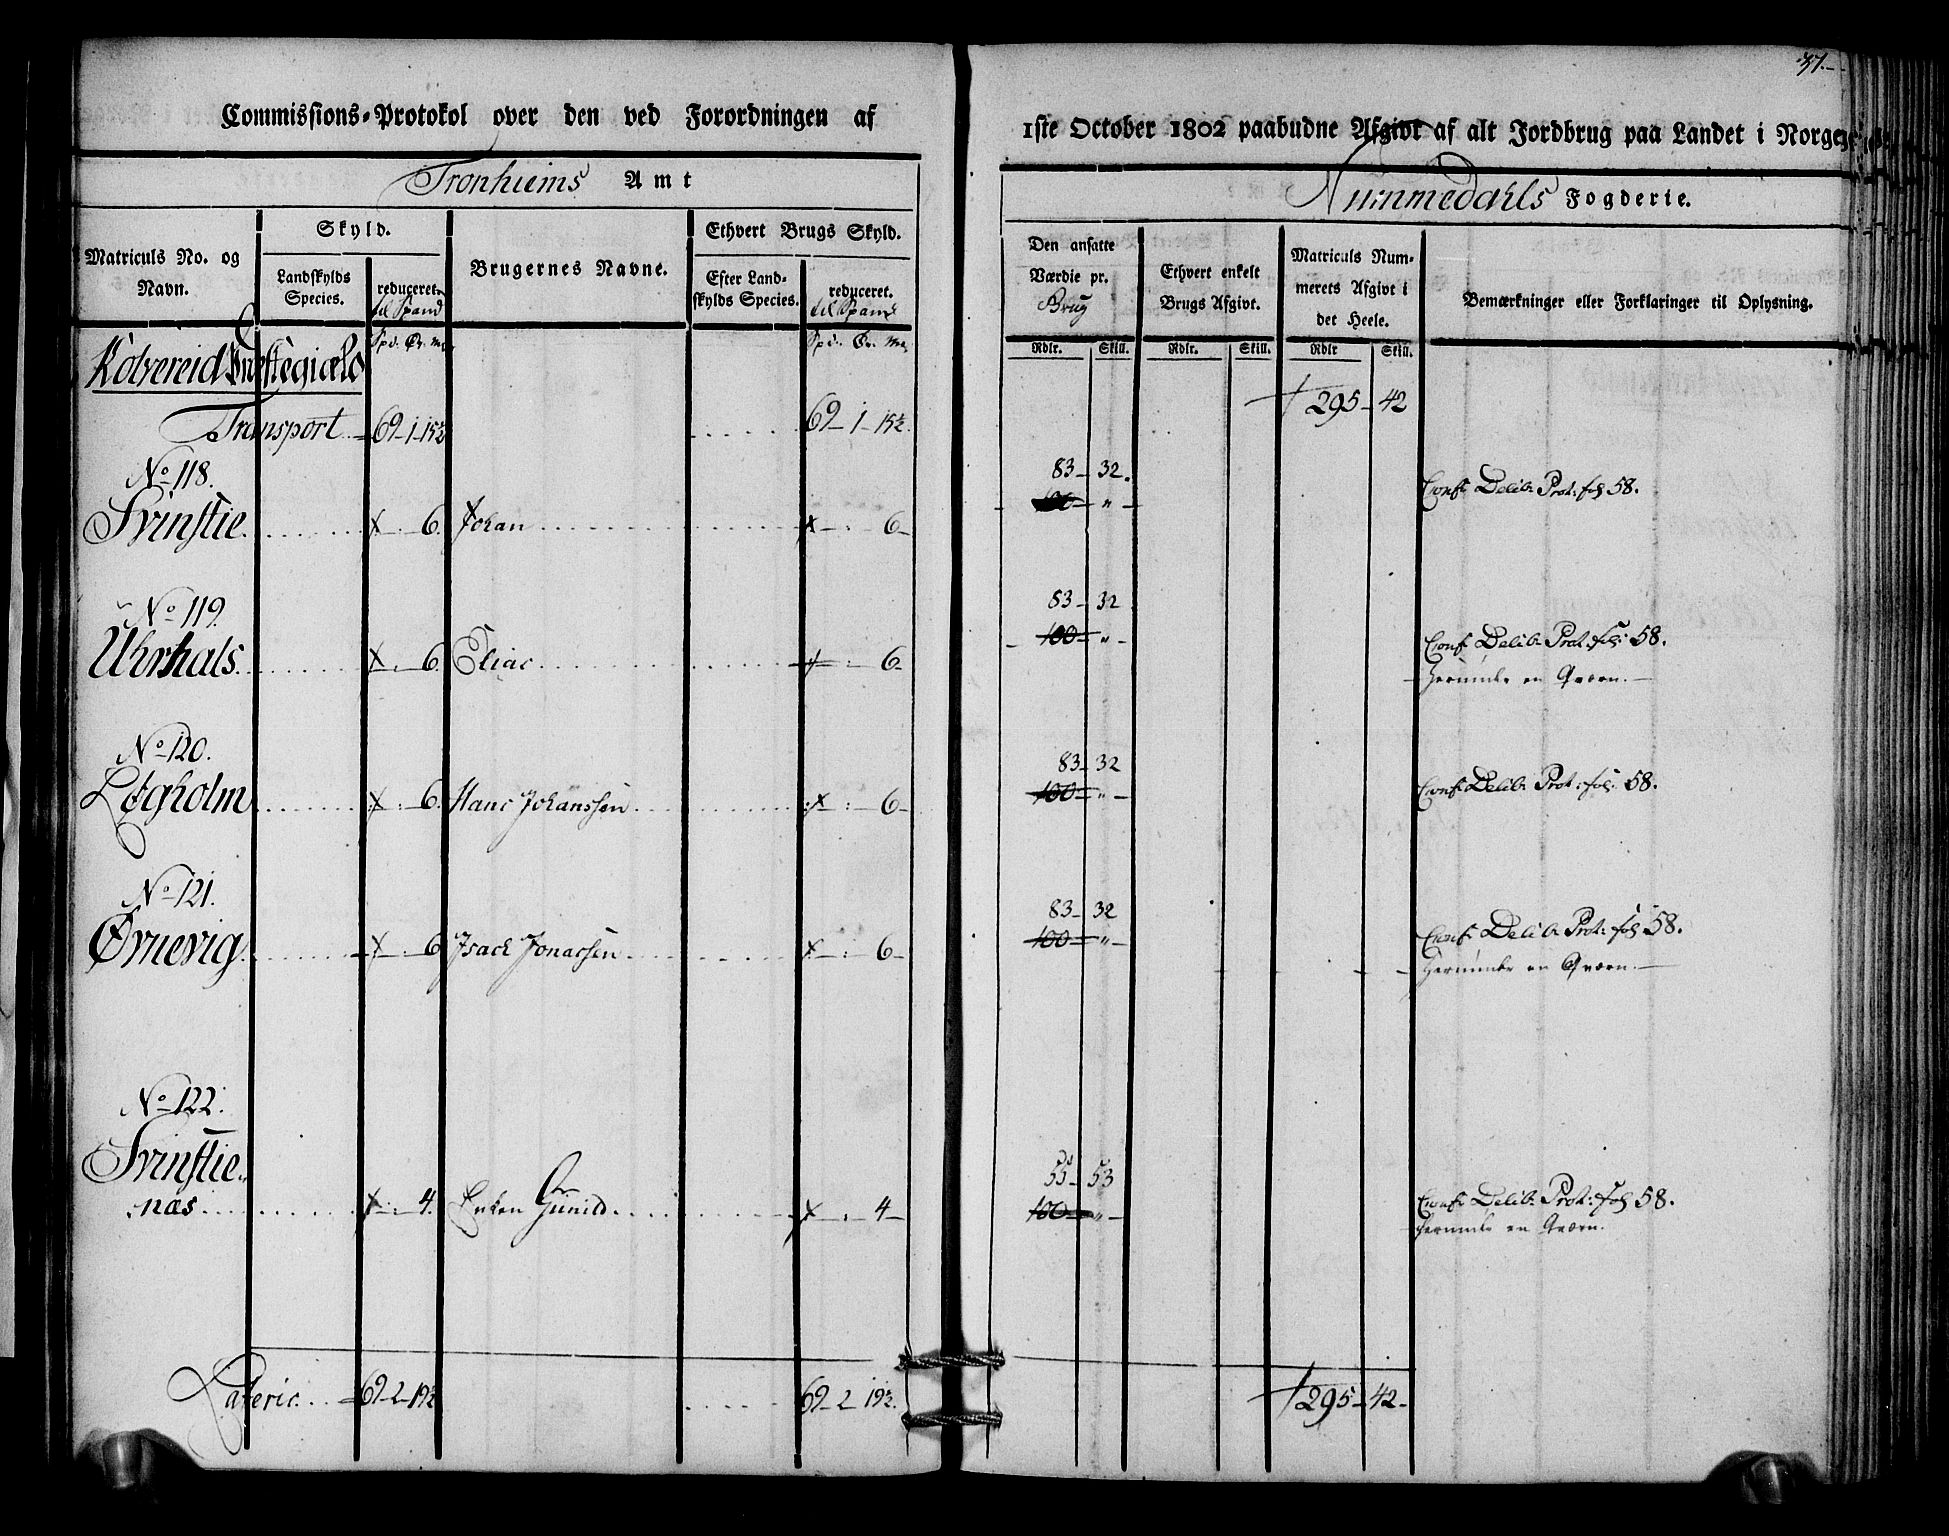 37.
Commissions-Protokol over den ved Forordningen af 1ste October 1802 paabudne Afgivt af alt Jordbrug paa Landet i Norge
Tronhiems Amt
Nummedahls Fogderie.
Matriculs No. og Navn.
Skyld.
Landskylds Species.
reduceret. til Spand
Brugernes Navne.
Ethvert Brugs Skyld.
Efter Landskylds Species.
reduceret. til Spand
Den ansatte Værdie pr. Brug
Ethvert enkelt Brugs Afgivt.
Matriculs Nummerets Afgivt i det Heele.
Bemærkninger eller Forklaringer til Oplysning.
Spd. Ør. Mk. Spd. Ør. Mk. Rdlr. Skill. Rdlr. Skill. Rdlr Skill.
Kolvereid Præstegield
Transport 69-1-15½ 69-1-15½. 295-42
No 118.
83-32.
Svinstie 6. Johan 6- 100 " - Conf. Delib: Prot: fol 58.
No 119.
83-32
Uhrhals. 6. Elias 6- 100 " - Conf. Delib: Prot: fol: 58.
herunder en Qværn.
No 120.
83-32
Løgholm 6. Hans Johanssen 6- 100 " - Conf. Delib: Prot: fol: 58.
No 121.
83-32
Ørnevig 6 Isach Jonassen 6- 100 " - Conf. Delib: Prot: fol 58.
herunder en Qværn.
No 122.
Svinstie-
55-53
næs 4. Enken Gunild 4- 100 " - Conf. Delib: Prot: fol 58.
herunder en Qværn.
Lateris 69-2-19½ 69-2 19½. 295-42-